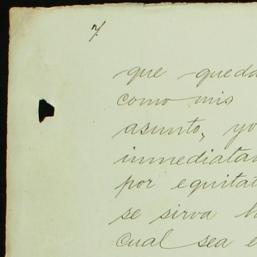 7
que queda
como mis
asunto, yo
inmediatam
por equitat
se sirva h
cual sea e